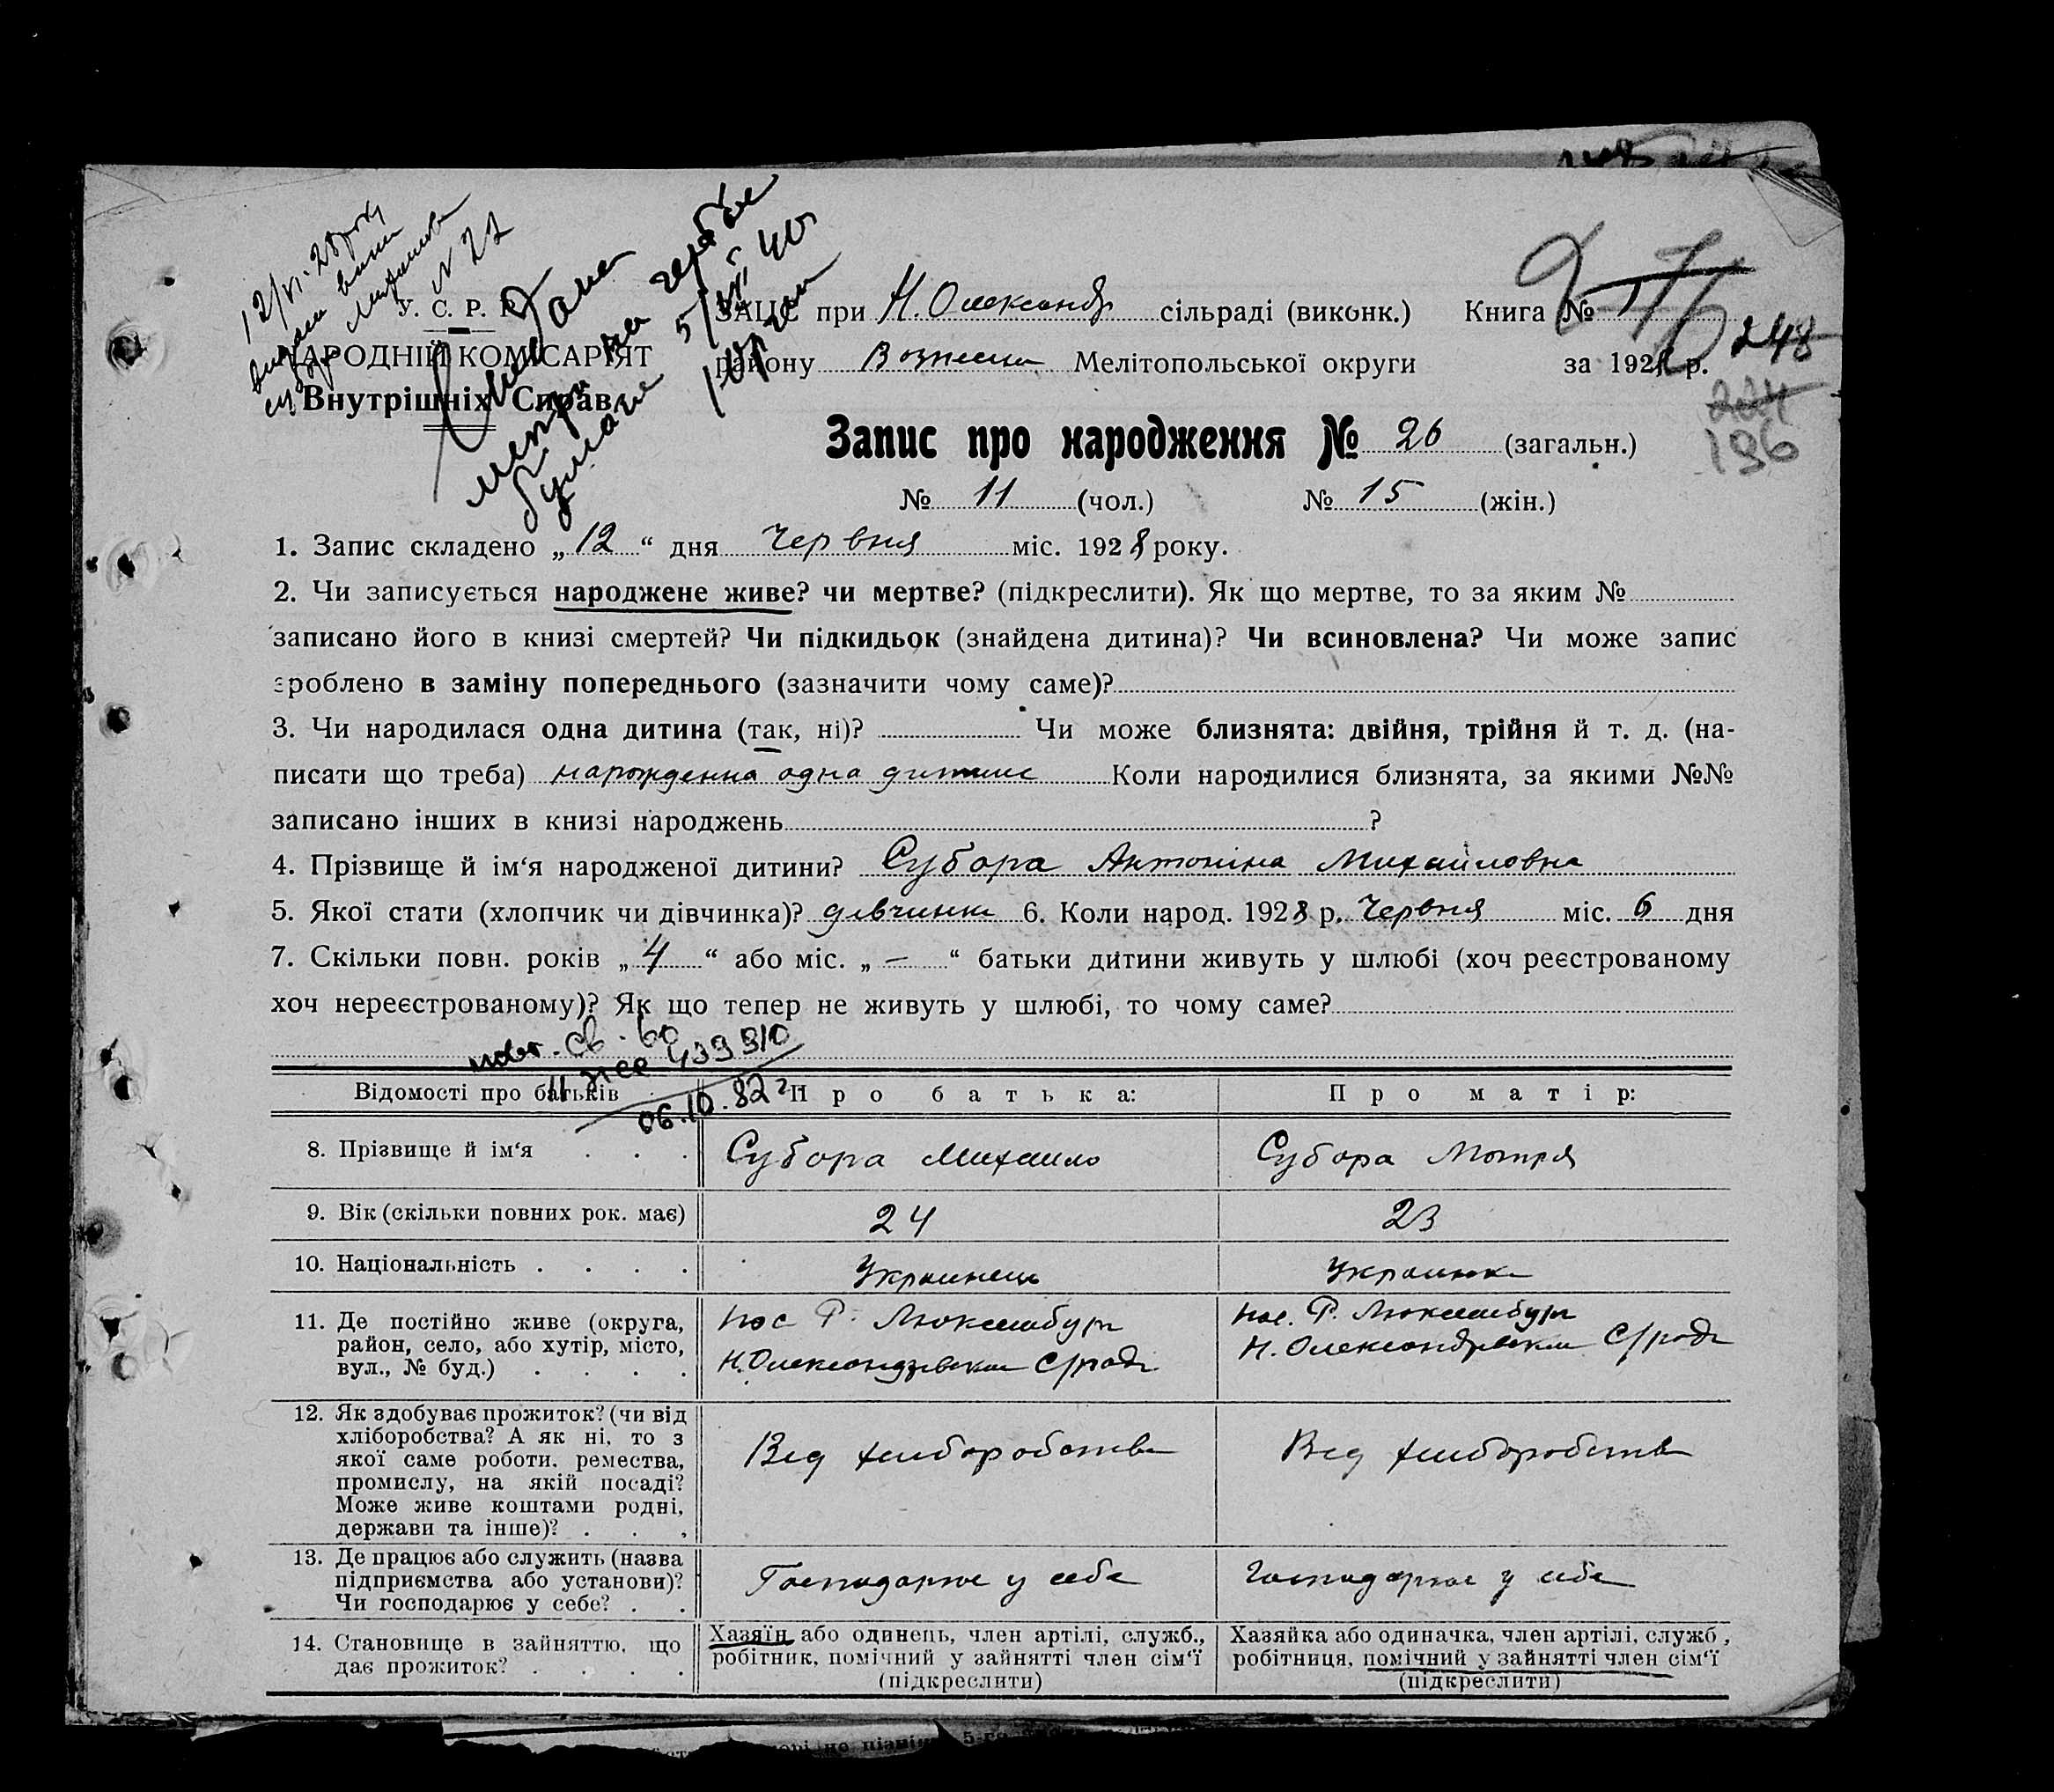 12/VI. 28 року
N 22
У. С. Р. Р.
НАРОДНІЙ КОМІСАРІЯТ
Внутрішніх Справ
на гербове
бумаге 5/VII 40
ЗАГС при Н. Олександр сільраді (виконк.) Книга №
району Вознесен Мелітопольської округи за 1928 р.
248
224
196
Запис про народження № 26 (загальн.)
№ 11 (чол.) № 15 (жін.)
1. Запис складено „12“ дня Червня міс. 1928 року.
2. Чи записується народжене живе? чи мертве? (підкреслити). Як що мертве, то за яким №
записано його в книзі смертей? Чи підкидьок (знайдена дитина)? Чи всиновлена? Чи може запис
зроблено в заміну попереднього (зазначити чому саме)?
3. Чи народилася одна дитина (так, ні)? Чи може близнята: двійня, трійня й т. д. (на-
писати що треба) нарожденна одна дитина Коли народилися близнята, за якими №№
записано інших в книзі народжень ?
4. Прізвище й ім‘я народженої дитини? Субора Антоніна Михайловна
5. Якої стати (хлопчик чи дівчинка)? дівчинка 6. Коли народ. 1928 р. Червня міс. 6 дня
7. Скільки повн. років „4“ або міс. „—“ батьки дитини живуть у шлюбі (хоч реєстрованому
хоч нереєстрованому)? Як що тепер не живуть у шлюбі, то чому саме?
439310
06.10.82 г
Відомості про батьків Про батька: Про матір:
8. Прізвище й ім‘я . . . Субора Михаило Субора Мотря
9. Вік (скільки повних рок. має) 24 23
10. Національність . . . . Украинець Украинка
11. Де постійно живе (округа, район, село, або хутір, місто, вул., № буд.) . . . .
пос Р. Люксембург
Н. Олександрівскои С/ради
пос. Р. Люксембург
Н. Олександрівскои С/ради
12. Як здобуває прожиток? (чи від
хліборобства? А як ні, то з
якої саме роботи, ремества,
промислу, на якій посаді?
Може живе коштами родні,
держави та інше)? . . .
Вид хлиборобства
Вид хлиборобства
13. Де працює або служить (назва
підприємства або установи)?
Чи господарює у себе? . .
Господарює у себе
Господарює у себе
14. Становище в зайняттю, що
дає прожиток? . . . .
Хазяїн або одинець, член артілі, служб.,
робітник, помічний у зайнятті член сім‘ї
(підкреслити)
Хазяйка або одиначка, член артілі, служб,
робітниця, помічний у зайнятті член сім‘ї
(підкреслити)